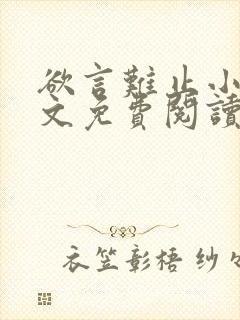 欲言難止小
文免費閱讀
衣笠彰梧 纱